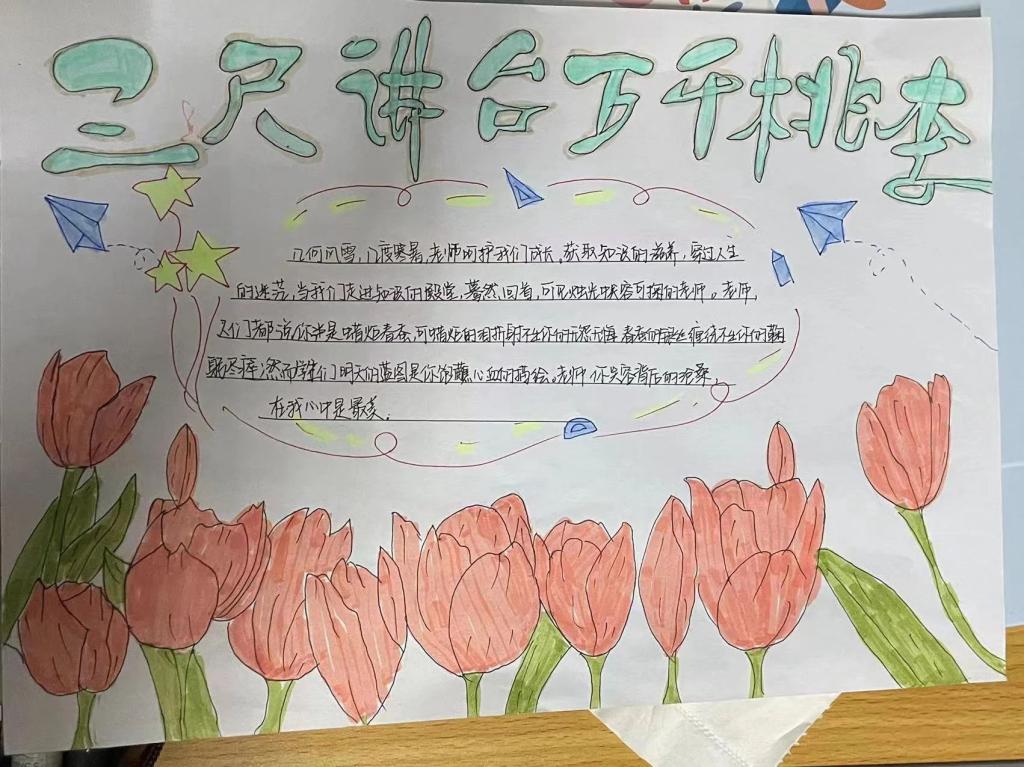 三尺讲台万千桃李
几何风雪,几度寒暑,老师呵护我们成长,获取知识的滋养,穿过人生
的迷茫,当我们走进知识的殿堂,蓦然回首,可见烛光中笑容可掬的老师。老师,
人们都说,你半是蜡炬春蚕,可蜡炬的泪折射不出你的无怨无悔,春蚕的吐丝缠绕不出你的鞠
躬尽瘁,然而学生们明天的蓝图是你饱蘸心血的描绘。老师,你笑容背后的沧桑,
在我心中是最美.